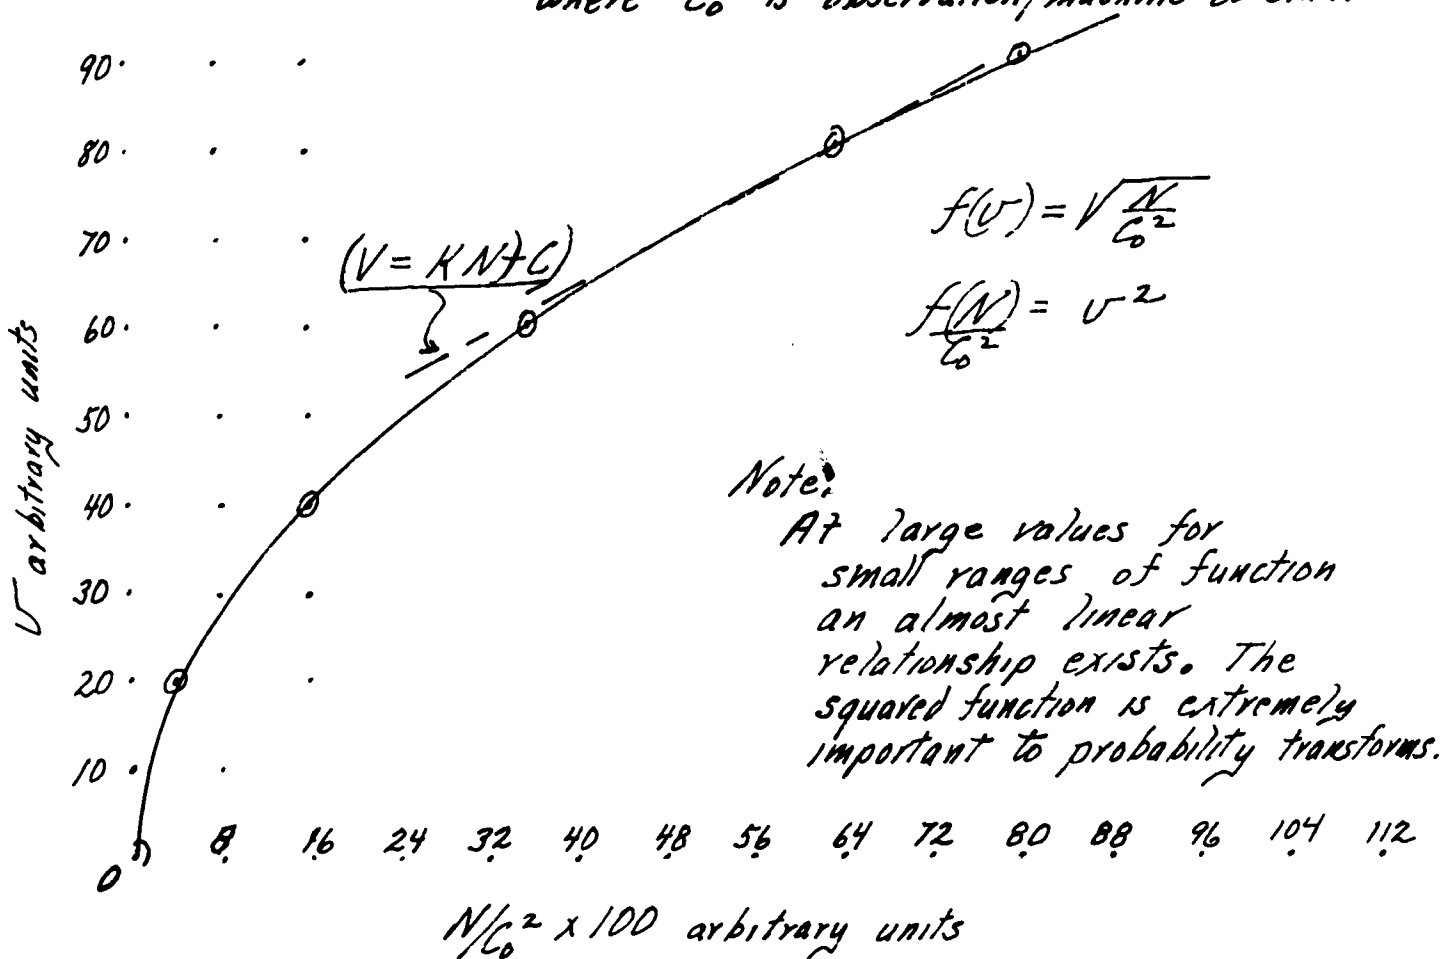 where C₀ is observation/machine
90
80
70
60
50
40
30
20
10
0
υ arbitrary units
(V = KN + C)
f(υ) = √N/C₀²
f(N)/C₀² = υ²
Note:
At large values for
small ranges of function
an almost linear
relationship exists. The
squared function is extremely
important to probability transforms.
8 16 24 32 40 48 56 64 72 80 88 96 104 112
N/C₀² x 100 arbitrary units